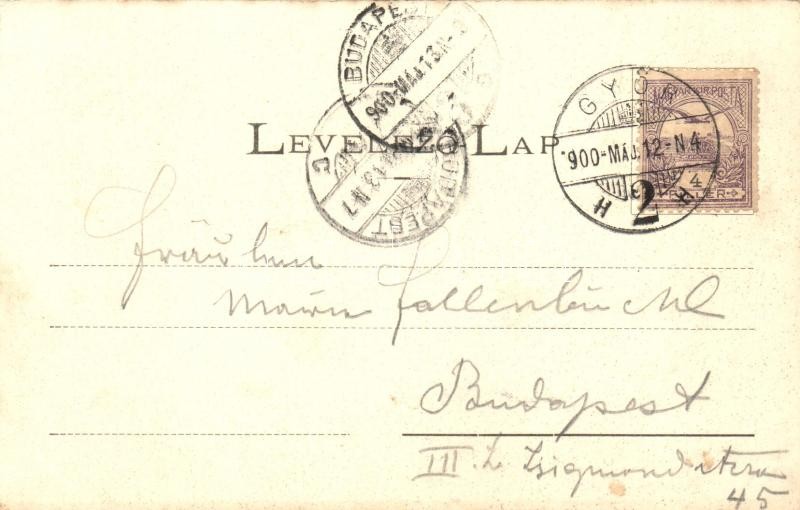 BUDAPEST
900-MÁJ.13.N-3
MAGYAR KIR. POSTA
GYŐR
LEVELEZŐ-LAP
900-MÁJ.12-N4
4
BUDAPEST
13.N7
H 2
FILLÉR
Fräulein
Fallenbüchl
Budapest
III. k. Zsigmond utcza
45